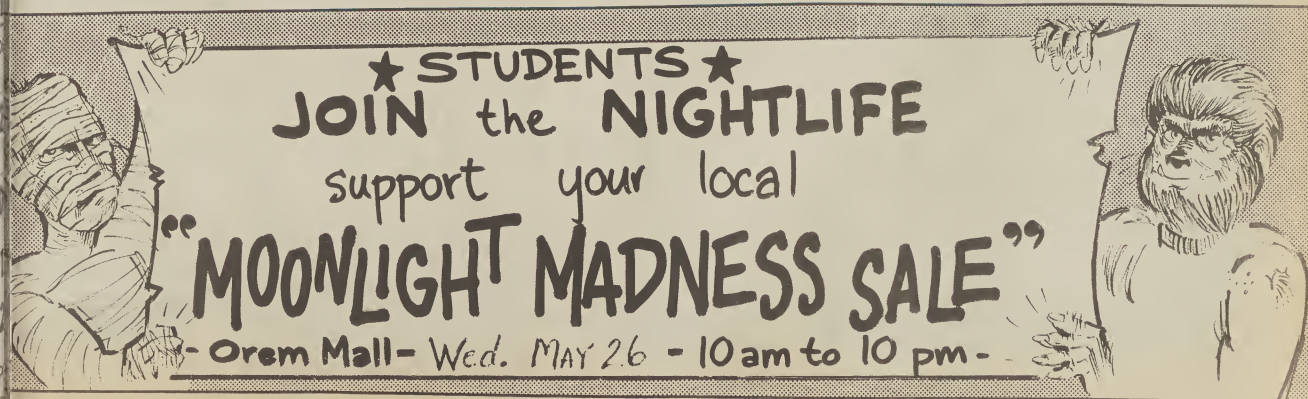 ★ STUDENTS ★
JOIN the NIGHTLIFE
support your local
"MOONLIGHT MADNESS SALE"
- Orem Mall - Wed. MAY 26 - 10 am to 10 pm -